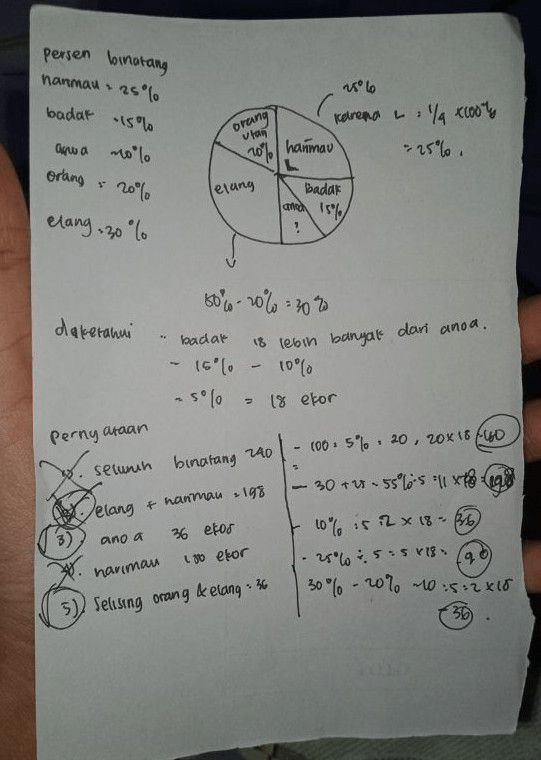 persen binatang
harimau = 25%
badak = 15%
anoa = 10%
orang = 20%
elang = 30%
25%
karena L = 1/4 x 100%
= 25%.
orang
utan
20%
harimau
L
elang
badak
15%
anoa
?
50% - 20% = 30%
diketahui = badak 18 lebih banyak dari anoa.
- 15% - 10%
= 5% = 18 ekor
pernyataan
1). seluruh binatang 240
2). elang + harimau = 198
3) anoa 36 ekor
4). harimau 100 ekor
5) selising orang & elang = 36
- 100 : 5% = 20, 20 x 18
=
- 30 + 25 = 55% : 5 = 11 x 18 = 198
- 10% : 5 = 2 x 18 = 36
- 25% ÷ 5 = 5 x 18 = 90
30% - 20% = 10 : 5 = 2 x 18
= 36.